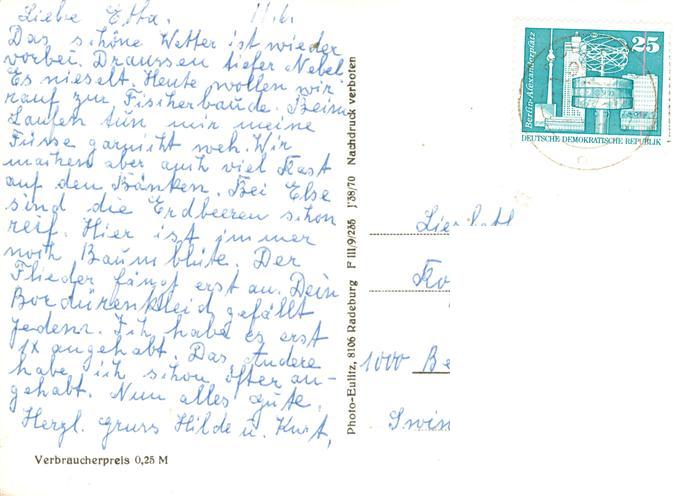 Liebe Etta. 11.6.
Das schöne Wetter ist wieder
vorbei. Draussen tiefer Nebel
Es nieselt. Heute wollen wir
rauf zur Fischerbaude. Beim
Laufen tun mir meine
Füsse garnicht weh. Wir
machen aber auch viel Rast
auf den Bänken. Bei Else
sind die Erdbeeren schon
reif. Hier ist immer
noch Baumblüte. Der
Flieder fängt erst an. Dein
Bordürenkleid gefällt
jedem. Ich habe es erst
1x angehabt. Das Andere
habe ich schon öfter an-
gehabt. Nun alles gute.
Herzl. gruss Hilde u. Kurt,
Verbraucherpreis 0,25 M
Photo-Eulitz, 8106 Radeburg F III/9/285 1738/70 Nachdruck verboten
25
Berlin-Alexanderplatz
DEUTSCHE DEMOKRATISCHE REPUBLIK
1000 Be
Swin